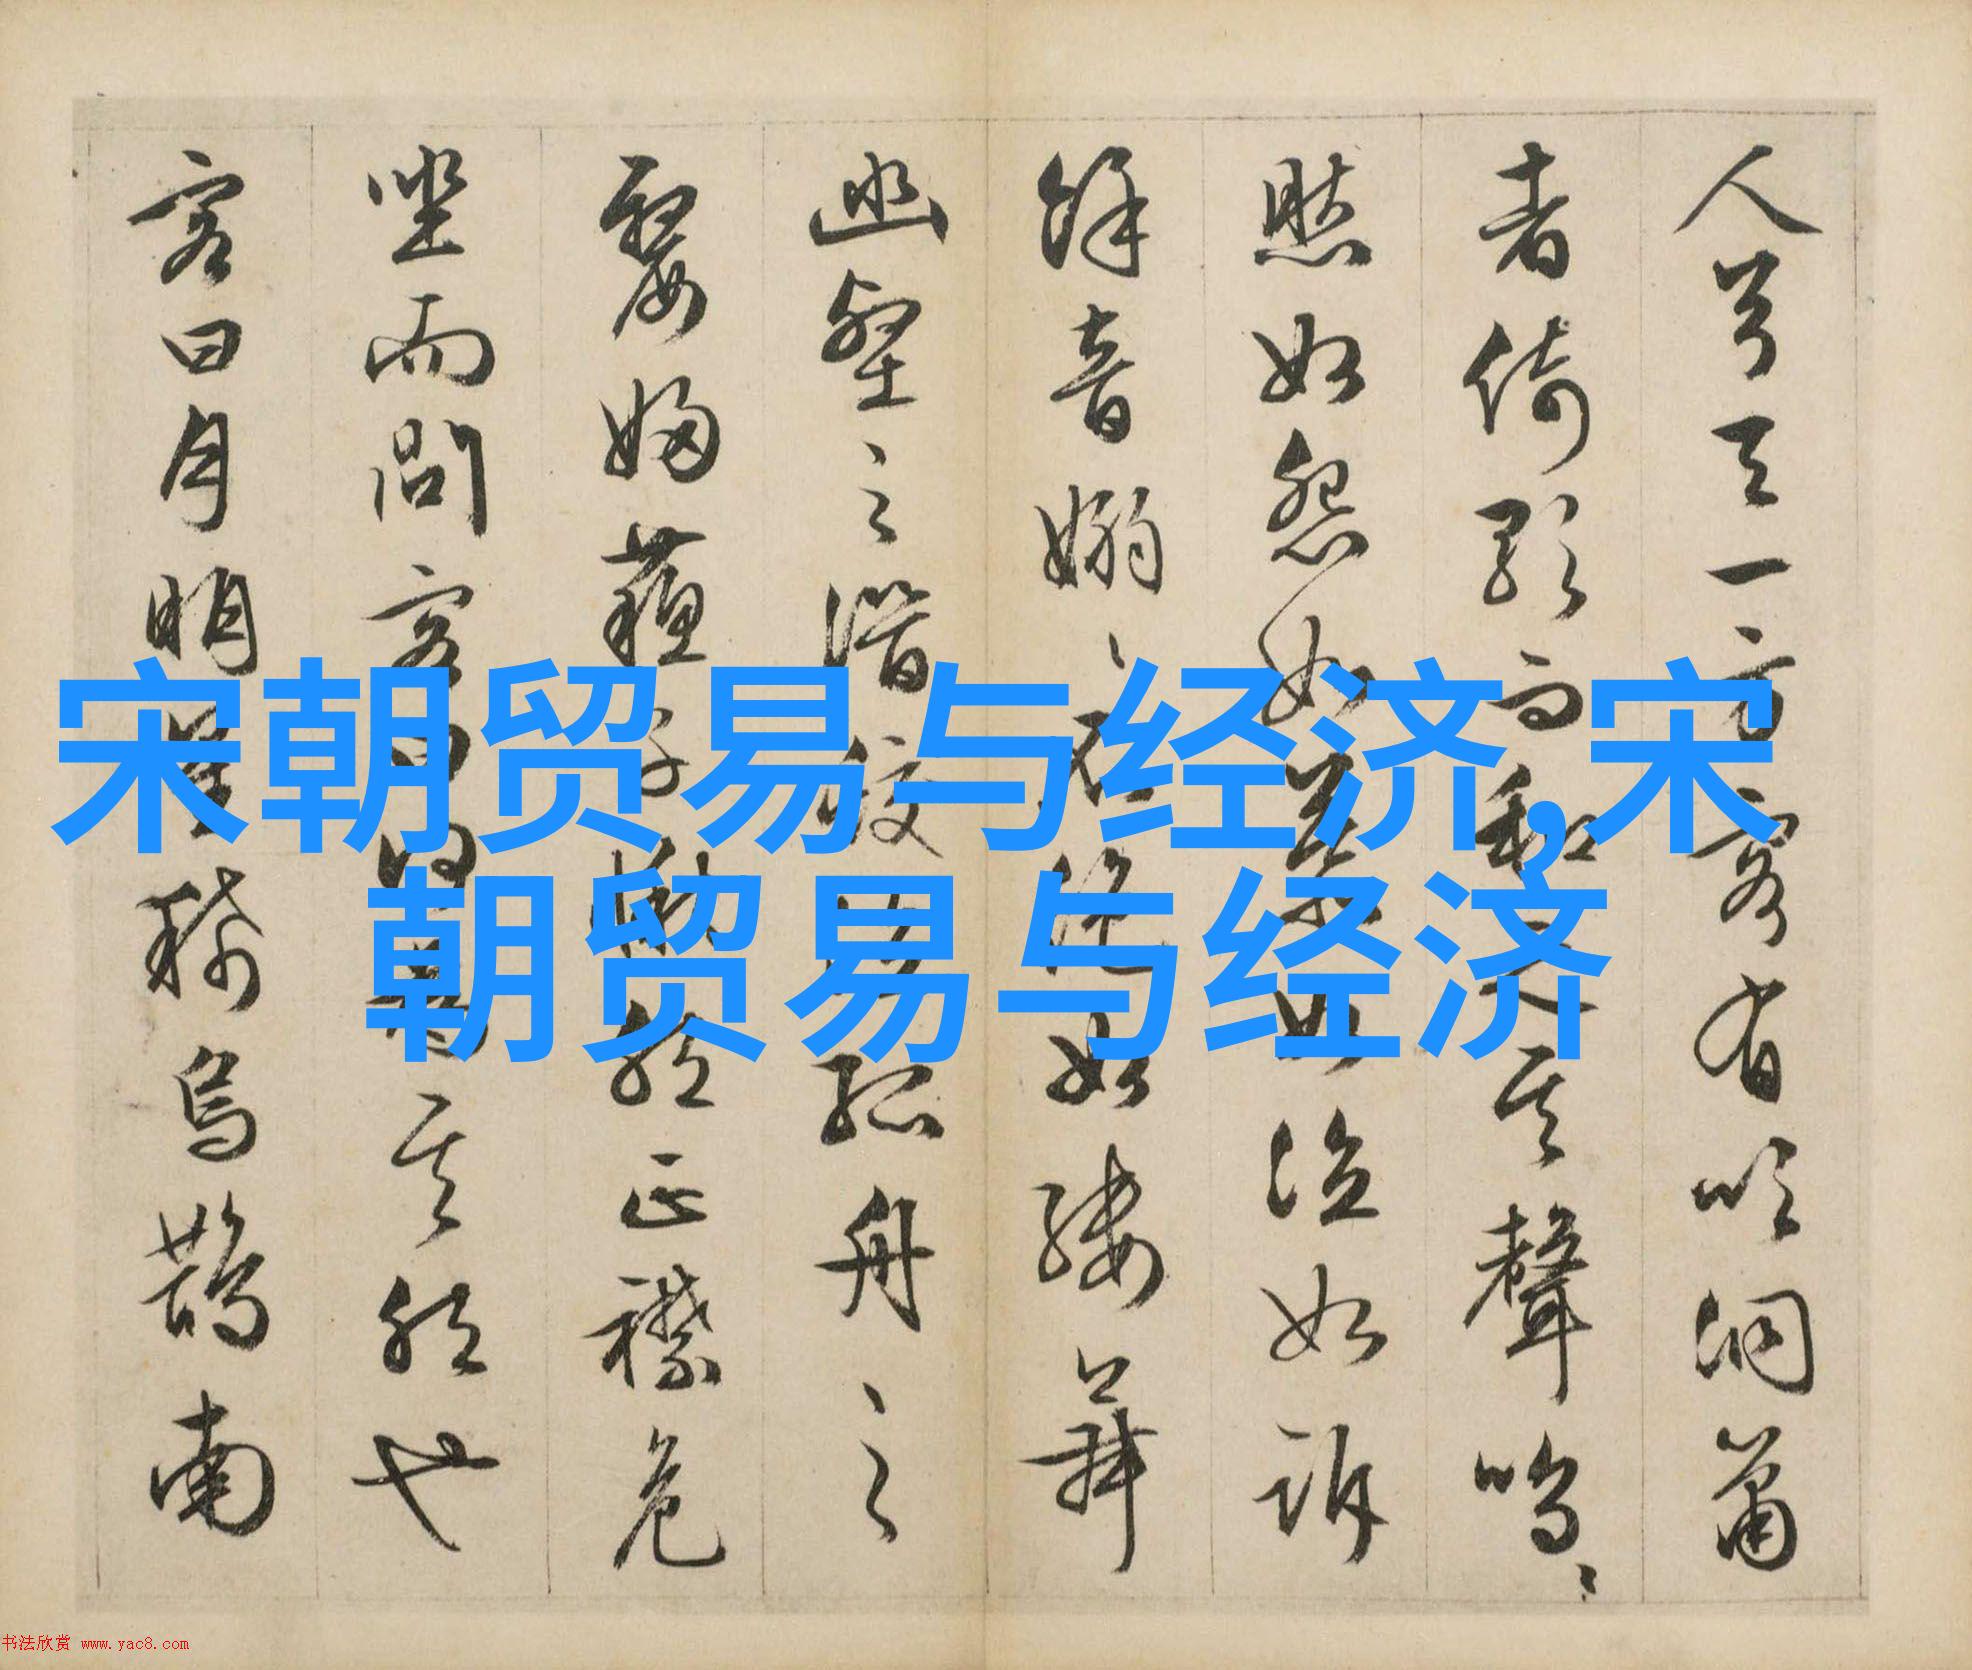 人兮天一方客有吹洞簫
者倚歌而和之其聲嗚〻
然如怨如慕如泣如訴
餘音嫋〻不絕如縷舞
幽壑之潛蛟泣孤舟之
嫠婦蘓子愀然正襟危
坐而問客曰何為其然也
客曰月明星稀烏鵲南
宋朝贸易与经济,宋
朝贸易与经济
书法欣赏 www.yac8.com